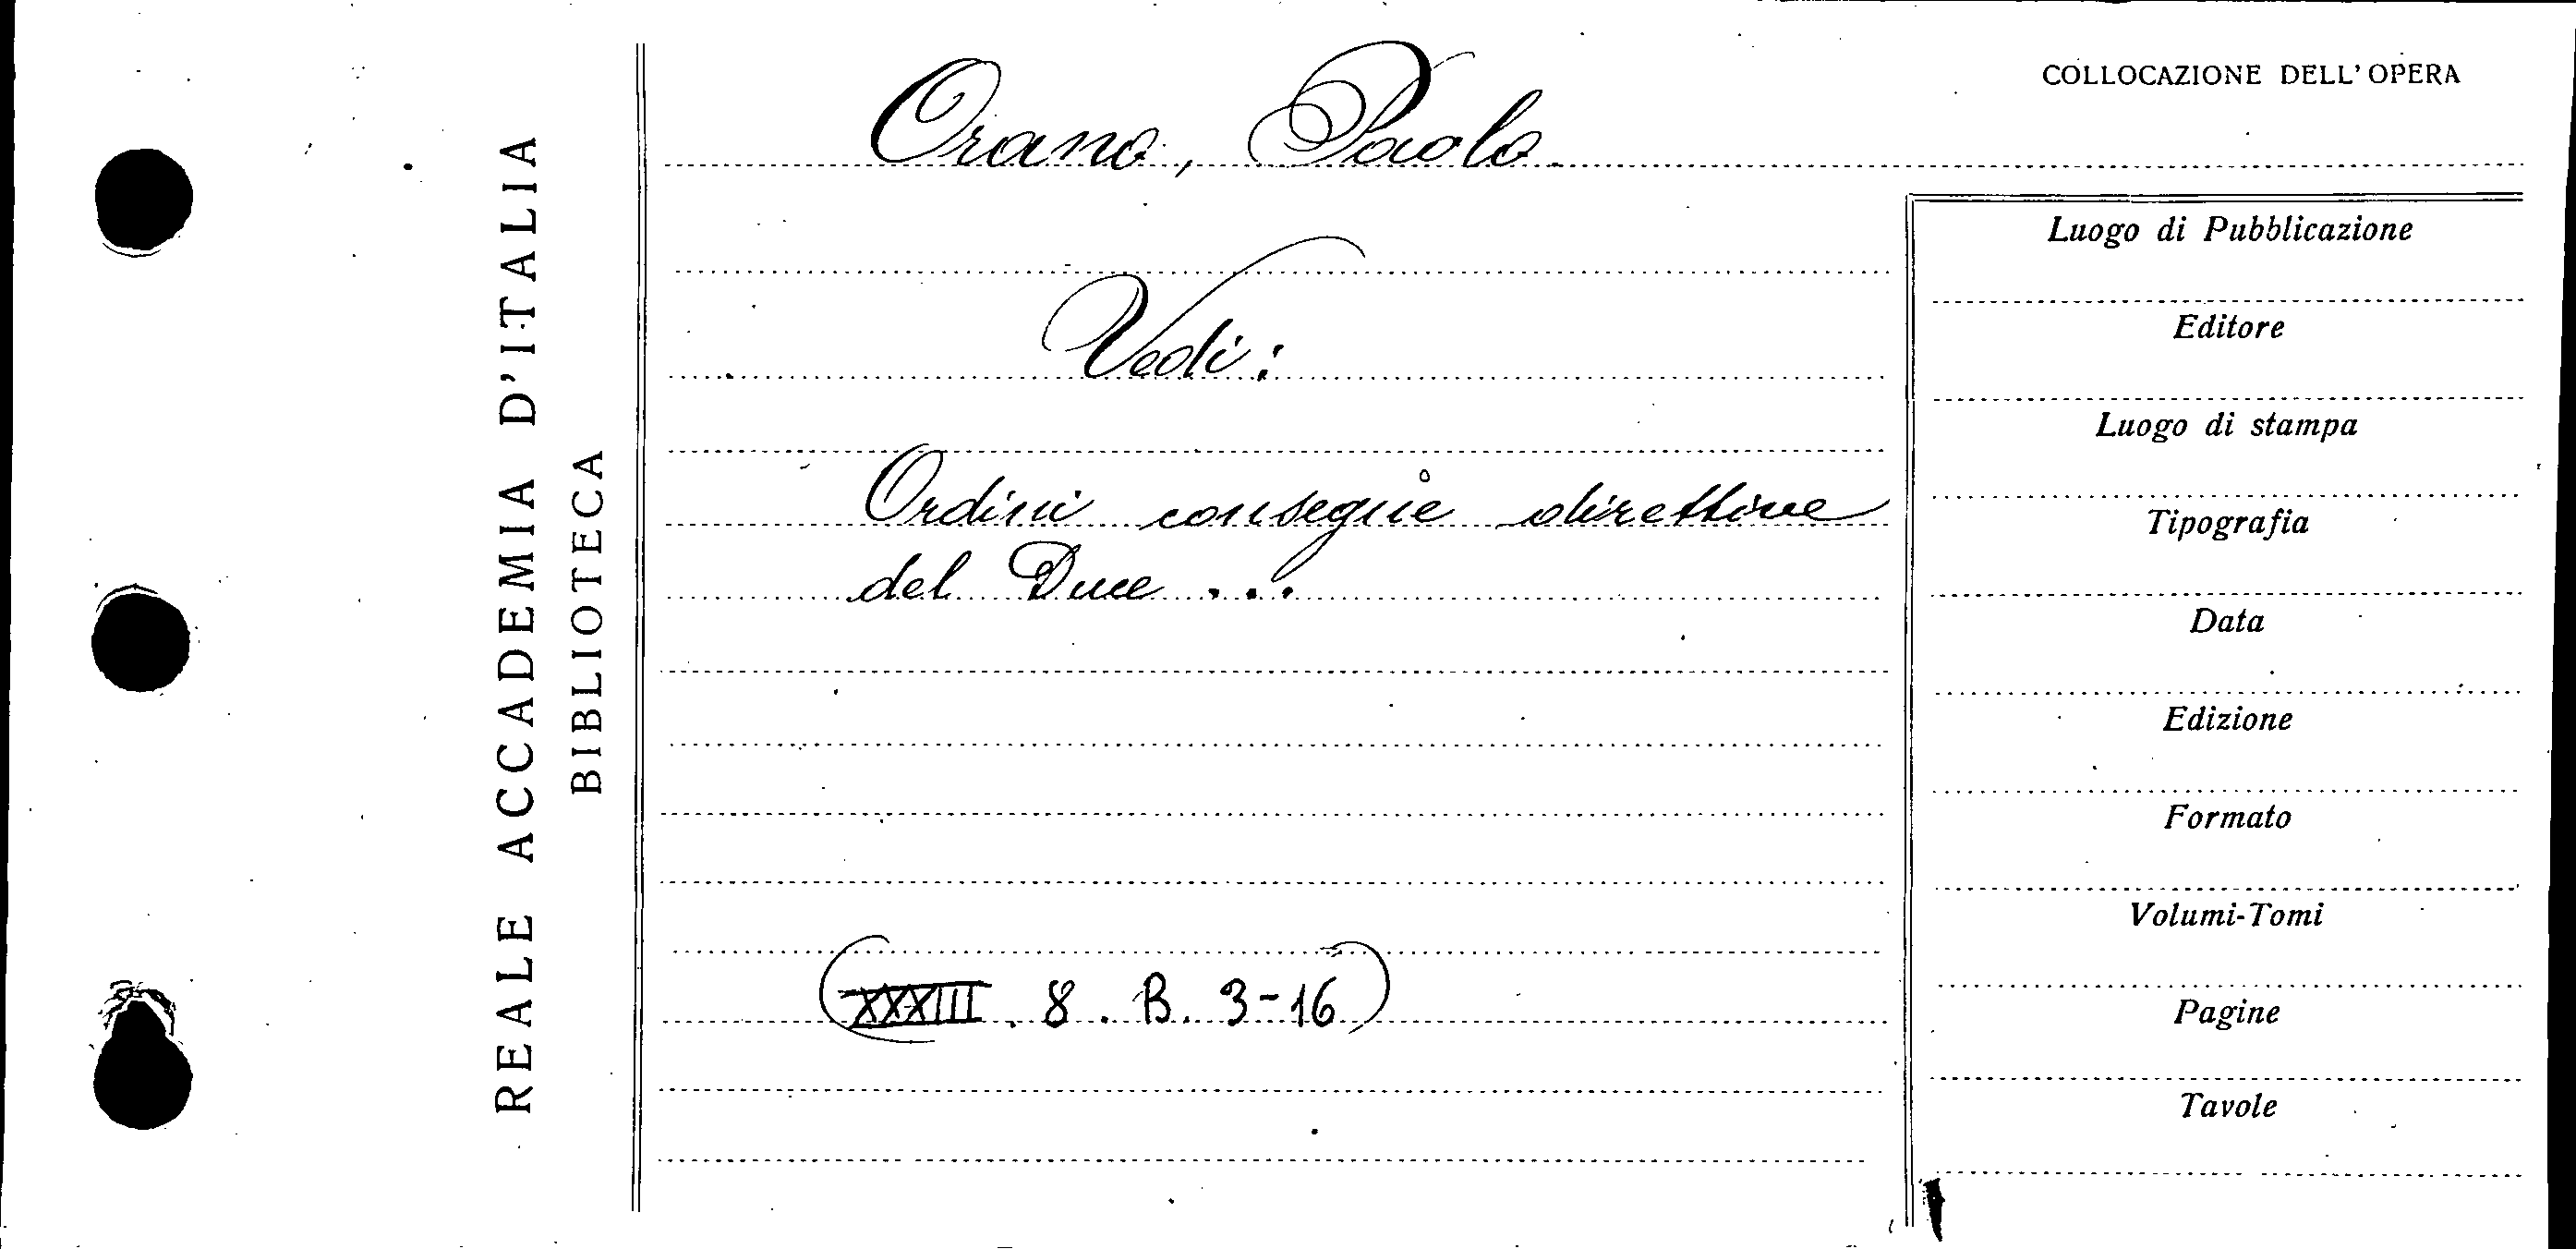 REALE ACCADEMIA D'ITALIA
BIBLIOTECA
Orano, Paolo
COLLOCAZIONE DELL'OPERA
Vedi:
Ordini consegne direttive
del Duce ...
(XXXIII. 8. B. 3-16)
Luogo di Pubblicazione
Editore
Luogo di stampa
Tipografia
Data
Edizione
Formato
Volumi-Tomi
Pagine
Tavole